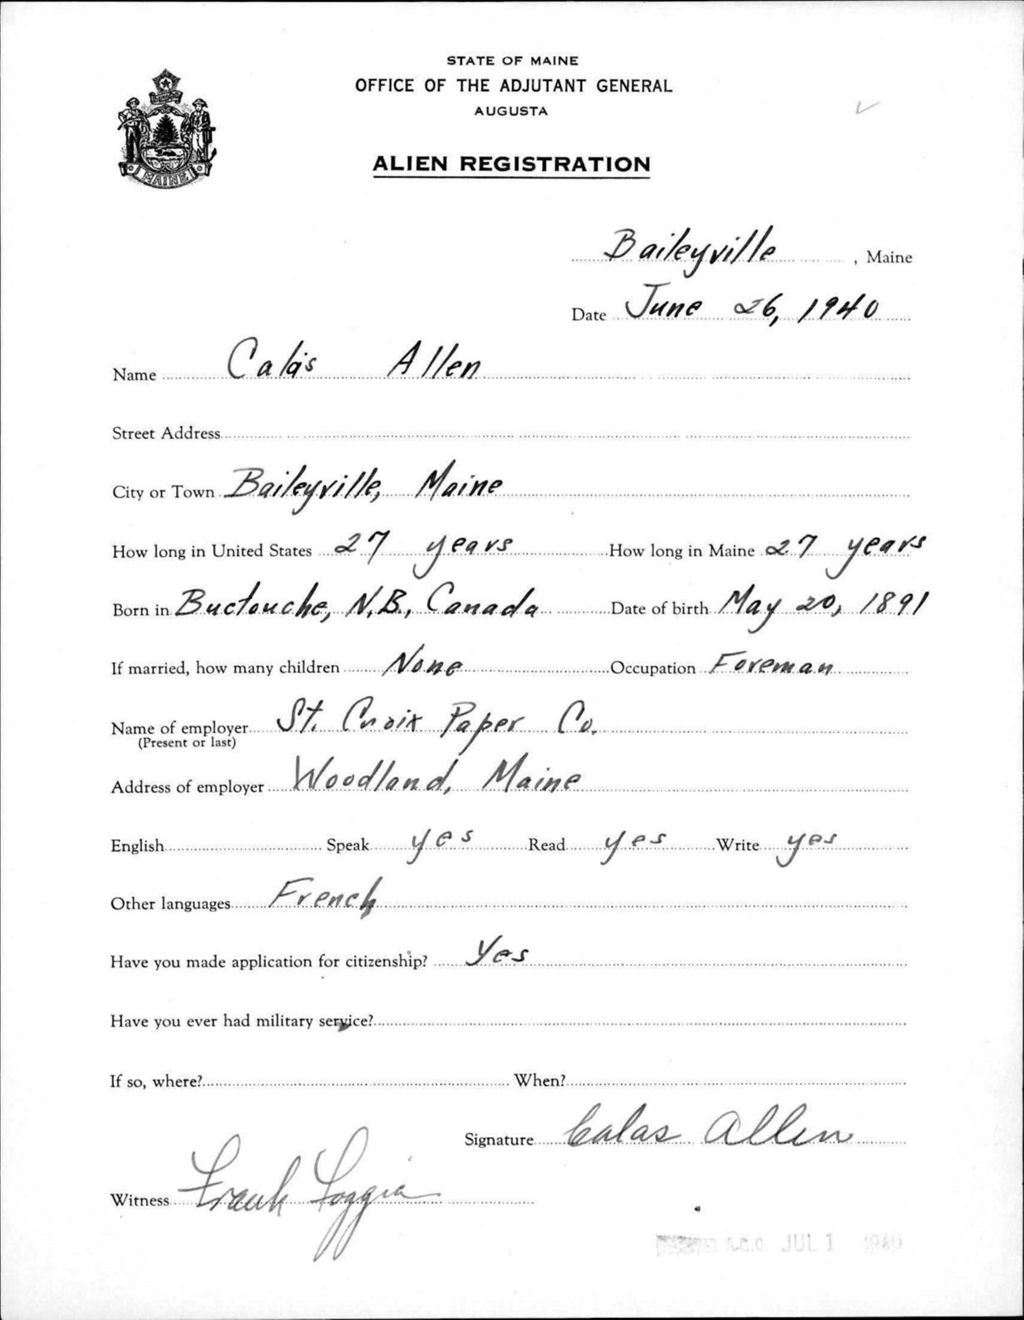 STATE OF MAINE
OFFICE OF THE ADJUTANT GENERAL
AUGUSTA
ALIEN REGISTRATION
MAINE
Baileyville, Maine
Date June 26, 1940
Name Calas Allen
Street Address
City or Town Baileyville, Maine
How long in United States 27 years How long in Maine 27 years
Born in Buctouche, N.B., Canada Date of birth May 20, 1891
If married, how many children None Occupation Foreman
Name of employer St. Croix Paper Co.
(Present or last)
Address of employer Woodland, Maine
English Speak yes Read yes Write yes
Other languages French
Have you made application for citizenship? Yes
Have you ever had military service?
If so, where? When?
Signature Calas Allen
Witness Frank Loggia
RECEIVED A.G.O. JUL 1 1940